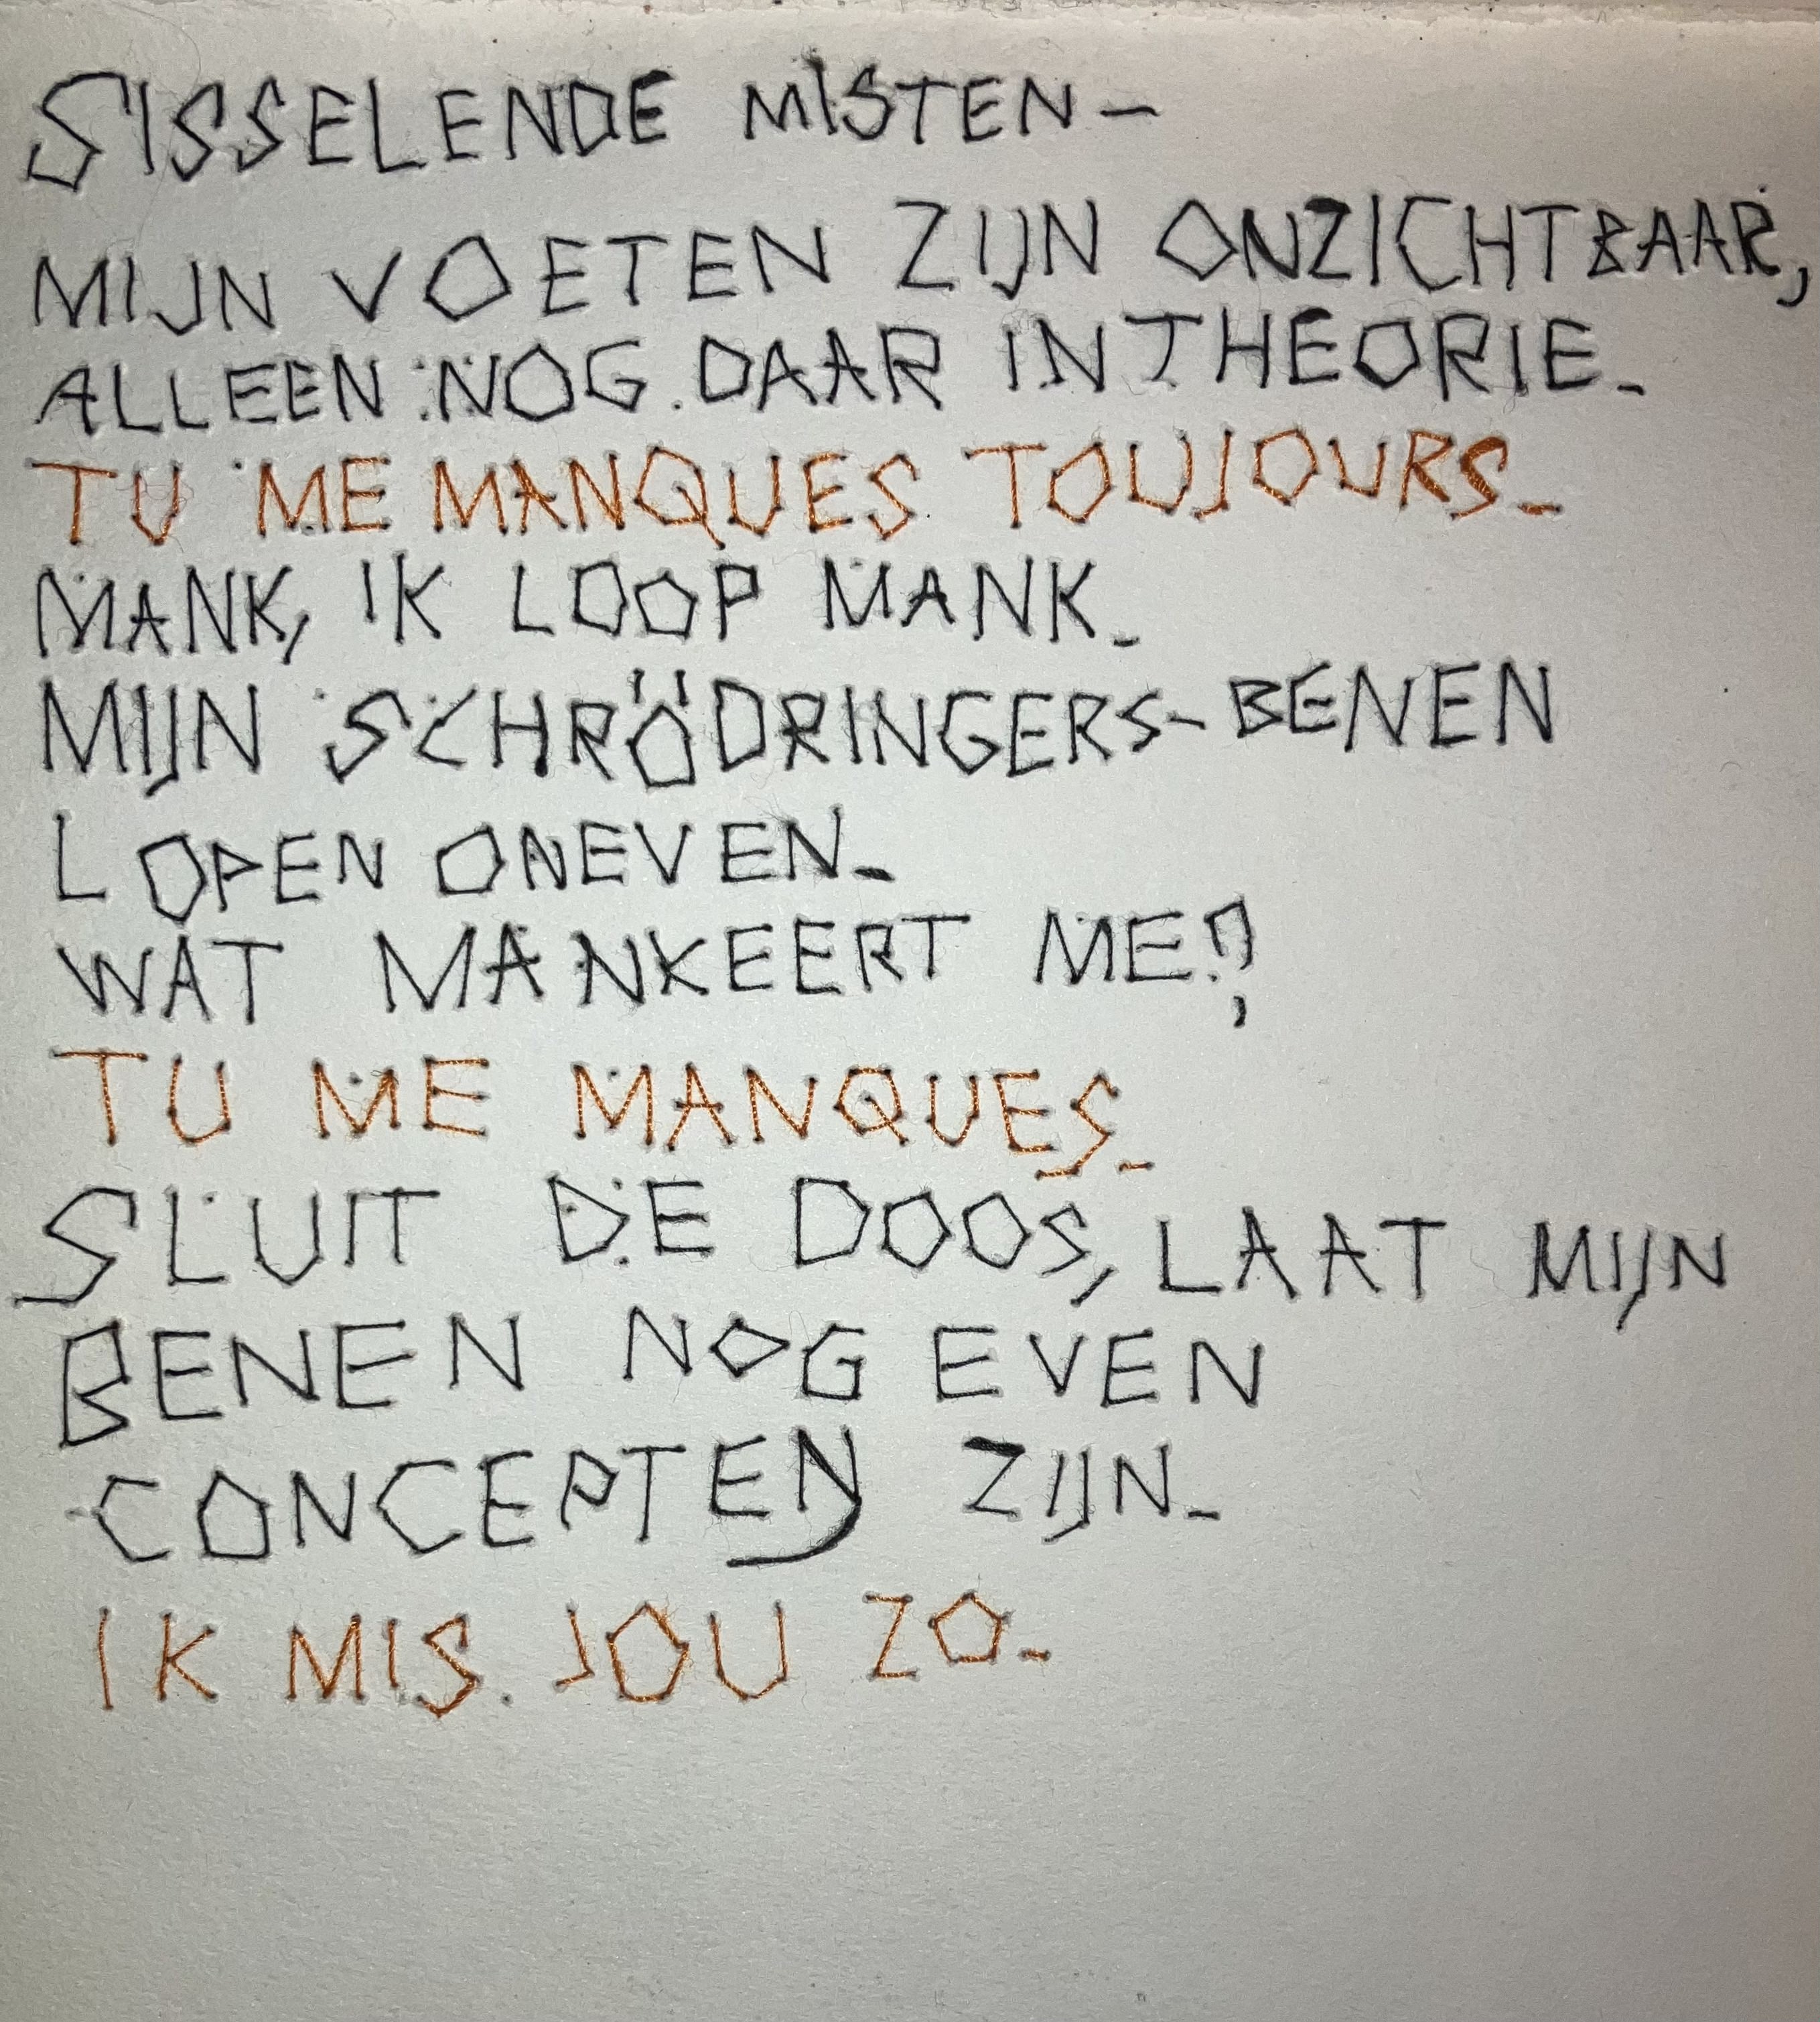 SISSELENDE MISTEN –
MIJN VOETEN ZIJN ONZICHTBAAR,
ALLEEN NOG DAAR IN THEORIE.
TU ME MANQUES TOUJOURS.
MANK, IK LOOP MANK.
MIJN SCHRÖDRINGERS-BENEN
LOPEN ONEVEN.
WAT MANKEERT ME?
TU ME MANQUES.
SLUIT DE DOOS, LAAT MIJN
BENEN NOG EVEN
CONCEPTEN ZIJN.
IK MIS JOU ZO.